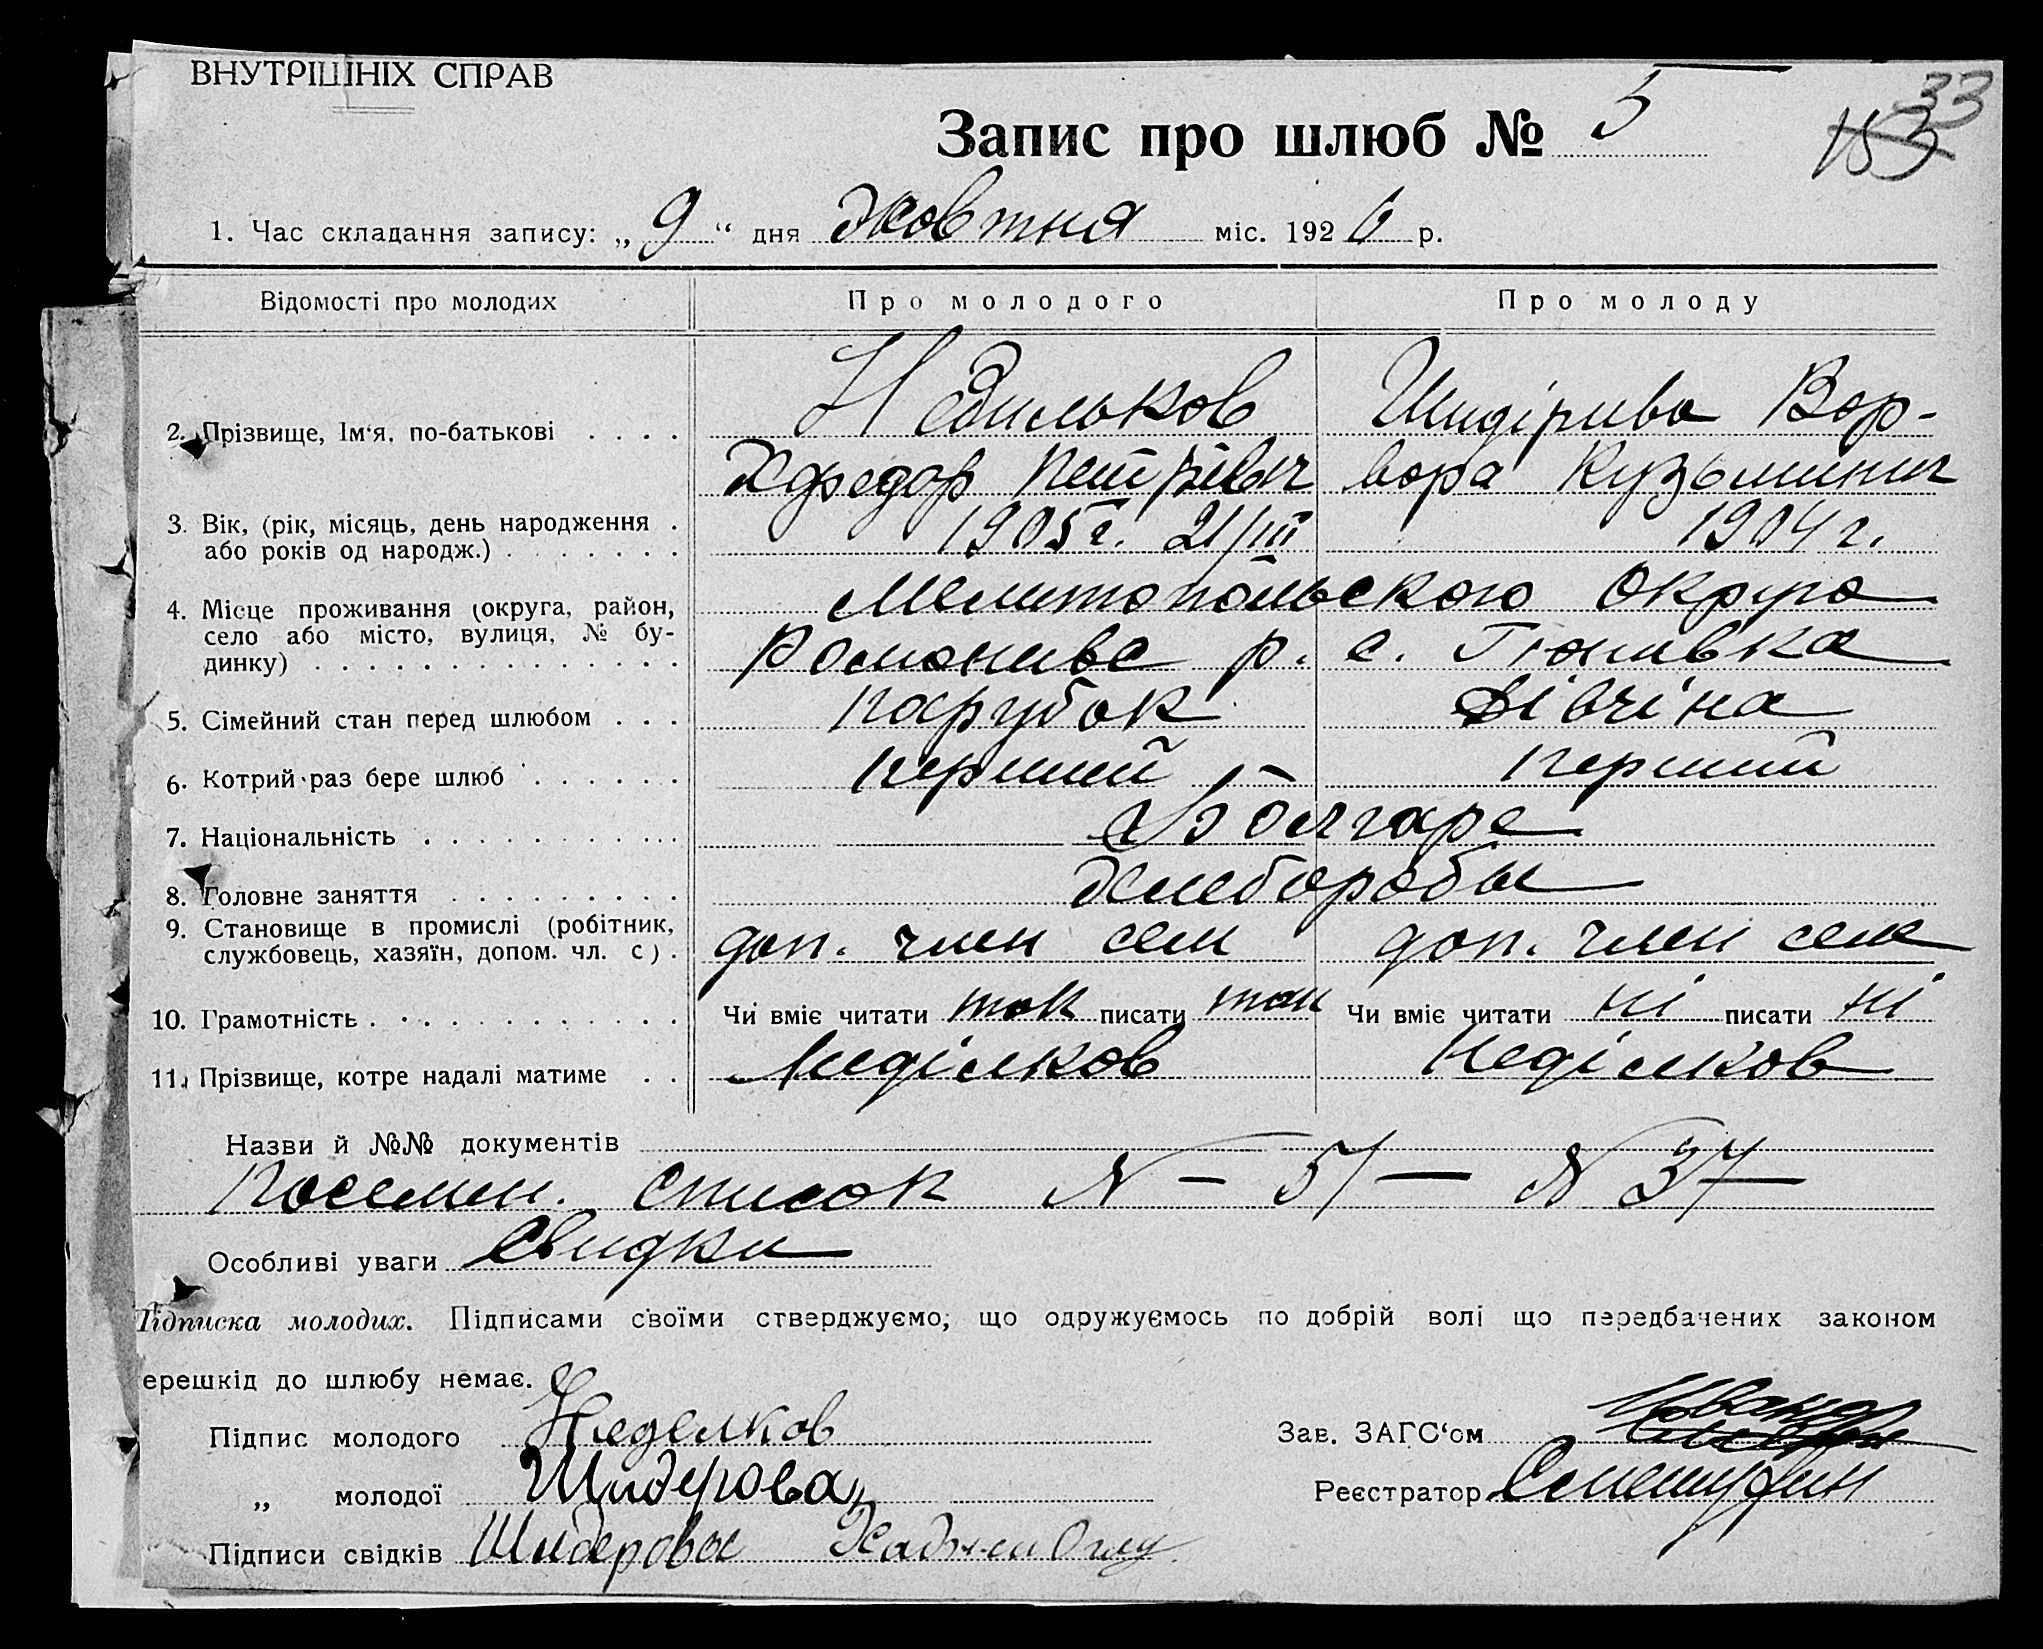 ВНУТРІШНІХ СПРАВ
33
153
Запис про шлюб № 5
1. Час складання запису: „ 9 “ дня Жовтня міс. 1926 р.
Відомості про молодих Про молодого Про молоду
2. Прізвище, Ім‘я, по-батькові . . . . Недильков Шидірива Вар-
Петрівич вора Кузьминич
3. Вік, (рік, місяць, день народження . 1905 г. 21/III 1904 г.
або років од народж.) . . . . . . .
4. Місце проживання (округа, район, Мелитопольского Округа
село або місто, вулиця, № бу-
динку) . . . . . . . . . . . . . . Романивс р. с. Гюнивка
5. Сімейний стан перед шлюбом . . . парубок Дівчіна
6. Котрий раз бере шлюб . . . . . . перший перший
7. Національність . . . . . . . . . . Болгаре
8. Головне заняття . . . . . . . . . Хлебаробы
9. Становище в промислі (робітник,
службовець, хазяїн, допом. чл. с) . доп. член сем доп. член сем
10. Грамотність . . . . . . . . . . . . Чи вміє читати так писати так Чи вміє читати ні писати ні
11. Прізвище, котре надалі матиме . . Неділков Неділков
Назви й №№ документів
Посемен. список N – 51 – N 37 –
Особливі уваги Свидки
Підписка молодих. Підписами своїми стверджуємо, що одружуємось по добрій волі що передбачених законом
ерешкід до шлюбу немає.
Підпис молодого Неделков Зав. ЗАГС‘ом
„ молодої Шидерова Реєстратор
Підписи свідків Шидеровы Хаджи Оглу